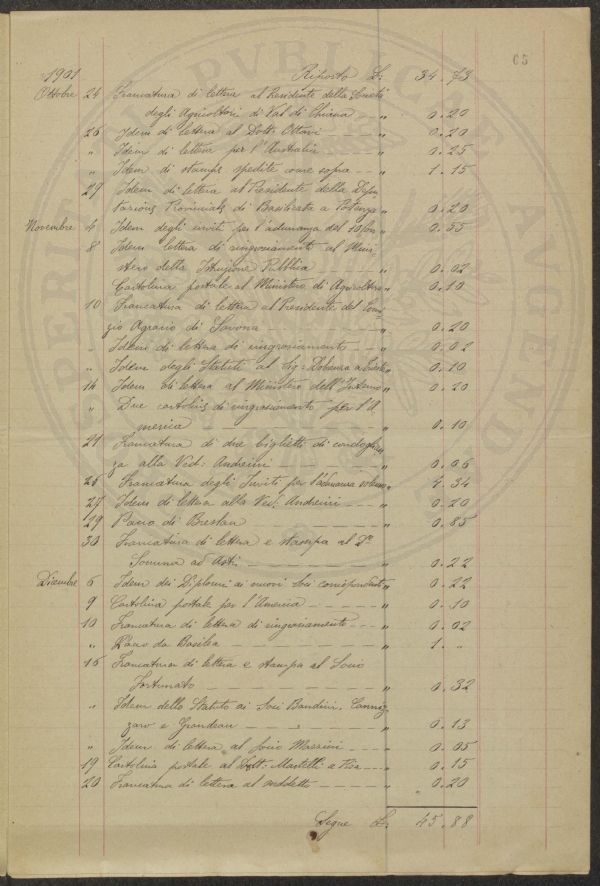 65
1901 Riporto L: 34.73
Ottobre 24 Francatura di lettera al Presidente della Società
degli Agricoltori di Val di Chiana " 0.20
26 Idem di lettera al Dott. Ottavi " 0.20
" Idem di lettera per l'Australia " 0.25
" Idem di stampe spedite come sopra " 1.15
29 Idem di lettera al Presidente della Depu
tazione Provinciale di Basilicata a Potenza " 0.20
Novembre 4 Idem degli inviti per l'adunanza del 10 " 0.55
8 Idem lettera di ringraziamento al Mini
stero della Istruzione Pubblica " 0.02
Cartolina postale al Ministero di Agricoltura " 0.10
10 Francatura di lettera al Presidente del Comi
zio Agrario di Savona 0.20
" Idem di lettera di ringraziamento " 0.02
" Idem degli Statuti al Sig: a Trieste " 0.10
14 Idem di lettera al Ministero dell'Interno " 0.20
" Due cartoline di ringraziamento per l'A
merica " 0.10
21 Francatura di due biglietti di condoglian
za alla Ved: Andreini " 0.06
25 Francatura degli Inviti per l'adunanza " 4.34
27 Idem di lettera alla Ved: Andreini " 0.20
29 Pacco di Breslau " 0.85
30 Francatura di lettera e stampa al Dr
Somma ad Asti " 0.22
Dicembre 6 Idem dei Diplomi ai nuovi Soci corrispondenti " 0.22
9 Cartolina postale per l'America " 0.10
10 Francatura di lettera di ringraziamento " 0.02
" Pacco da Basilea " 1. "
16 Francatura di lettera e stampa al Socio
Fortunato " 0.32
" Idem dello Statuto ai Soci Bandini, Canniz
zaro e Grandeau " 0.13
" Idem di lettera al Socio " 0.05
19 Cartolina postale al Dott: Martelli a Pisa " 0.15
20 Francatura di lettera al suddetto " 0.20
Segue L: 45.88
PUBLICAE